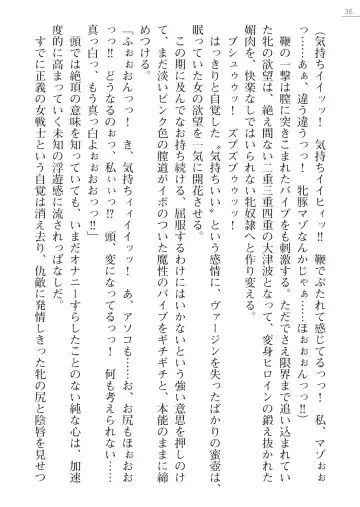 36
(気持ちイイッッ！　気持ちイイヒィッ‼　鞭でぶたれて感じてるっっ！　私、マゾぉぉ
っっ……あぁ、違う違うっっ！　牝豚マゾなんかじゃぁ……ほぉぉぉんっっ‼)
　鞭の一撃は膣に突きこまれたバイブをも刺激する。ただでさえ限界まで追い込まれてい
た牝の欲望は、絶え間ない二重三重四重の大津波となって、変身ヒロインの鍛え抜かれた
媚肉を、快楽なしではいられない牝奴隷へと作り変える。
　ブシュゥゥッ！　ズブズブゥゥッ！
　はっきりと自覚した〝気持ちいい〟という感情に、ヴァージンを失ったばかりの蜜壺は、
眠っていた女の欲望を一気に開花させる。
　この期に及んでなお持ち続ける、屈服するわけにはいかないという強い意思を押しのけ
て、まだ淡いピンク色の膣道がイボのついた魔性のバイブをギチギチと、本能のままに締
めつける。
「ふぉぉおんっっ！　き、気持ちィィイイッ！　あ、アソコも……お、お尻もほぉぉお
っっ‼　どうなるのぉっ、私ぃぃっ!?　頭、変になってるっっ！　何も考えられなひっっ！
真っ白っ、もう真っ白よぉぉおおっっ‼」
　頭では絶頂の意味を知っていても、いまだオナニーすらしたことのない純な心は、加速
度的に高まっていく未知の浮遊感に流されっぱなしだ。
　すでに正義の女戦士という自覚は消え去り、仇敵に発情しきった牝の尻と陰唇を見せつ